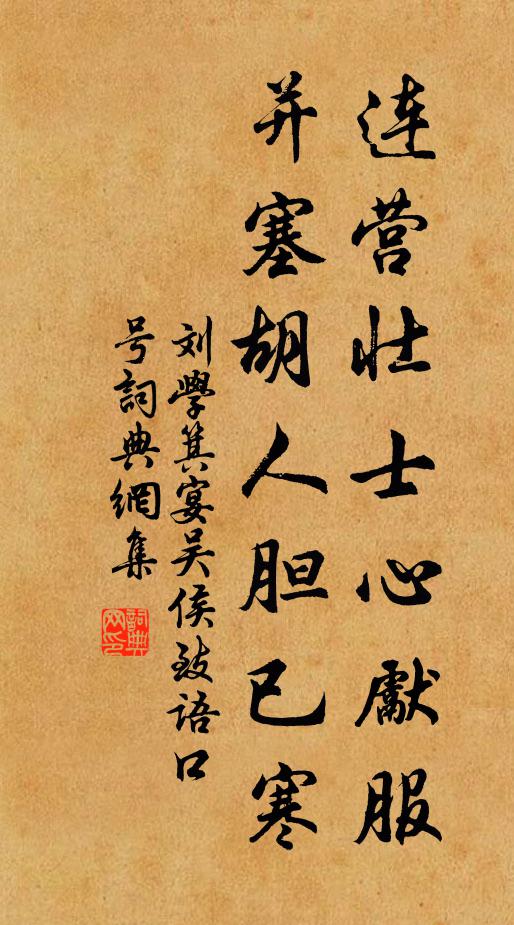 连营壮士心獻服
并塞胡人胆已寒
刘學箕宴吴侯致语口
号詞典網集
詞典
网印